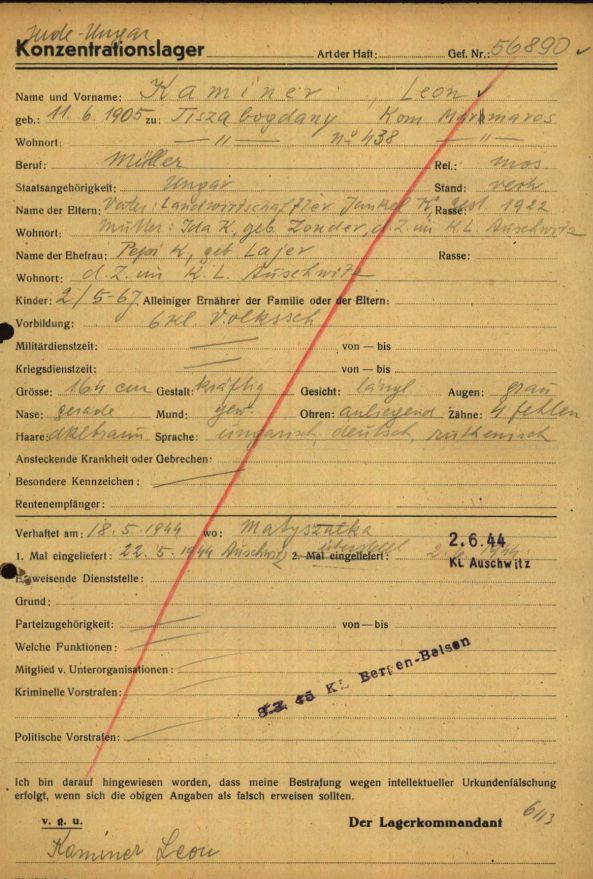 Jude-Ungar
Konzentrationslager Art der Haft: Gef. Nr.: 56890
Name und Vorname: Kaminer, Leon
geb.: 11.6.1905 zu: Tisza bogdany Kom Marmaros
Wohnort: — " — No 438 — " —
Beruf: Müller Rel.: mos.
Staatsangehörigkeit: Ungar Stand: verh
Name der Eltern: Vater: Landwirtschaftler Jankel K, gest 1922 Rasse:
Wohnort: Mutter: Ida K, geb. Zonder, d. Z. im K.L. Auschwitz
Name der Ehefrau: Pepi K, geb Lajer Rasse:
Wohnort: d. Z. im K.L. Auschwitz
Kinder: 2/5-6J. Alleiniger Ernährer der Familie oder der Eltern:
Vorbildung: 6 Kl. Volkssch
Militärdienstzeit: von — bis
Kriegsdienstzeit: von — bis
Grösse: 164 cm Gestalt: kräftig Gesicht: längl Augen: grau
Nase: gerade Mund: gew. Ohren: anliegend Zähne: 4 fehlen
Haare: dklbraun Sprache: ungarisch, deutsch, ruthenisch
Ansteckende Krankheit oder Gebrechen:
Besondere Kennzeichen:
Rentenempfänger:
Verhaftet am: 18.5.1944 wo: Matyszalka
2.6.44
1. Mal eingeliefert: 22.5.1944 Auschwitz 2. Mal eingeliefert: 2.6.1944
KL Auschwitz
Einweisende Dienststelle:
Grund:
Parteizugehörigkeit: von — bis
Welche Funktionen:
Mitglied v. Unterorganisationen:
Kriminelle Vorstrafen:
KL Bergen-Belsen
Politische Vorstrafen:
Ich bin darauf hingewiesen worden, dass meine Bestrafung wegen intellektueller Urkundenfälschung
erfolgt, wenn sich die obigen Angaben als falsch erweisen sollten.
v. g. u. Der Lagerkommandant
Kaminer Leon